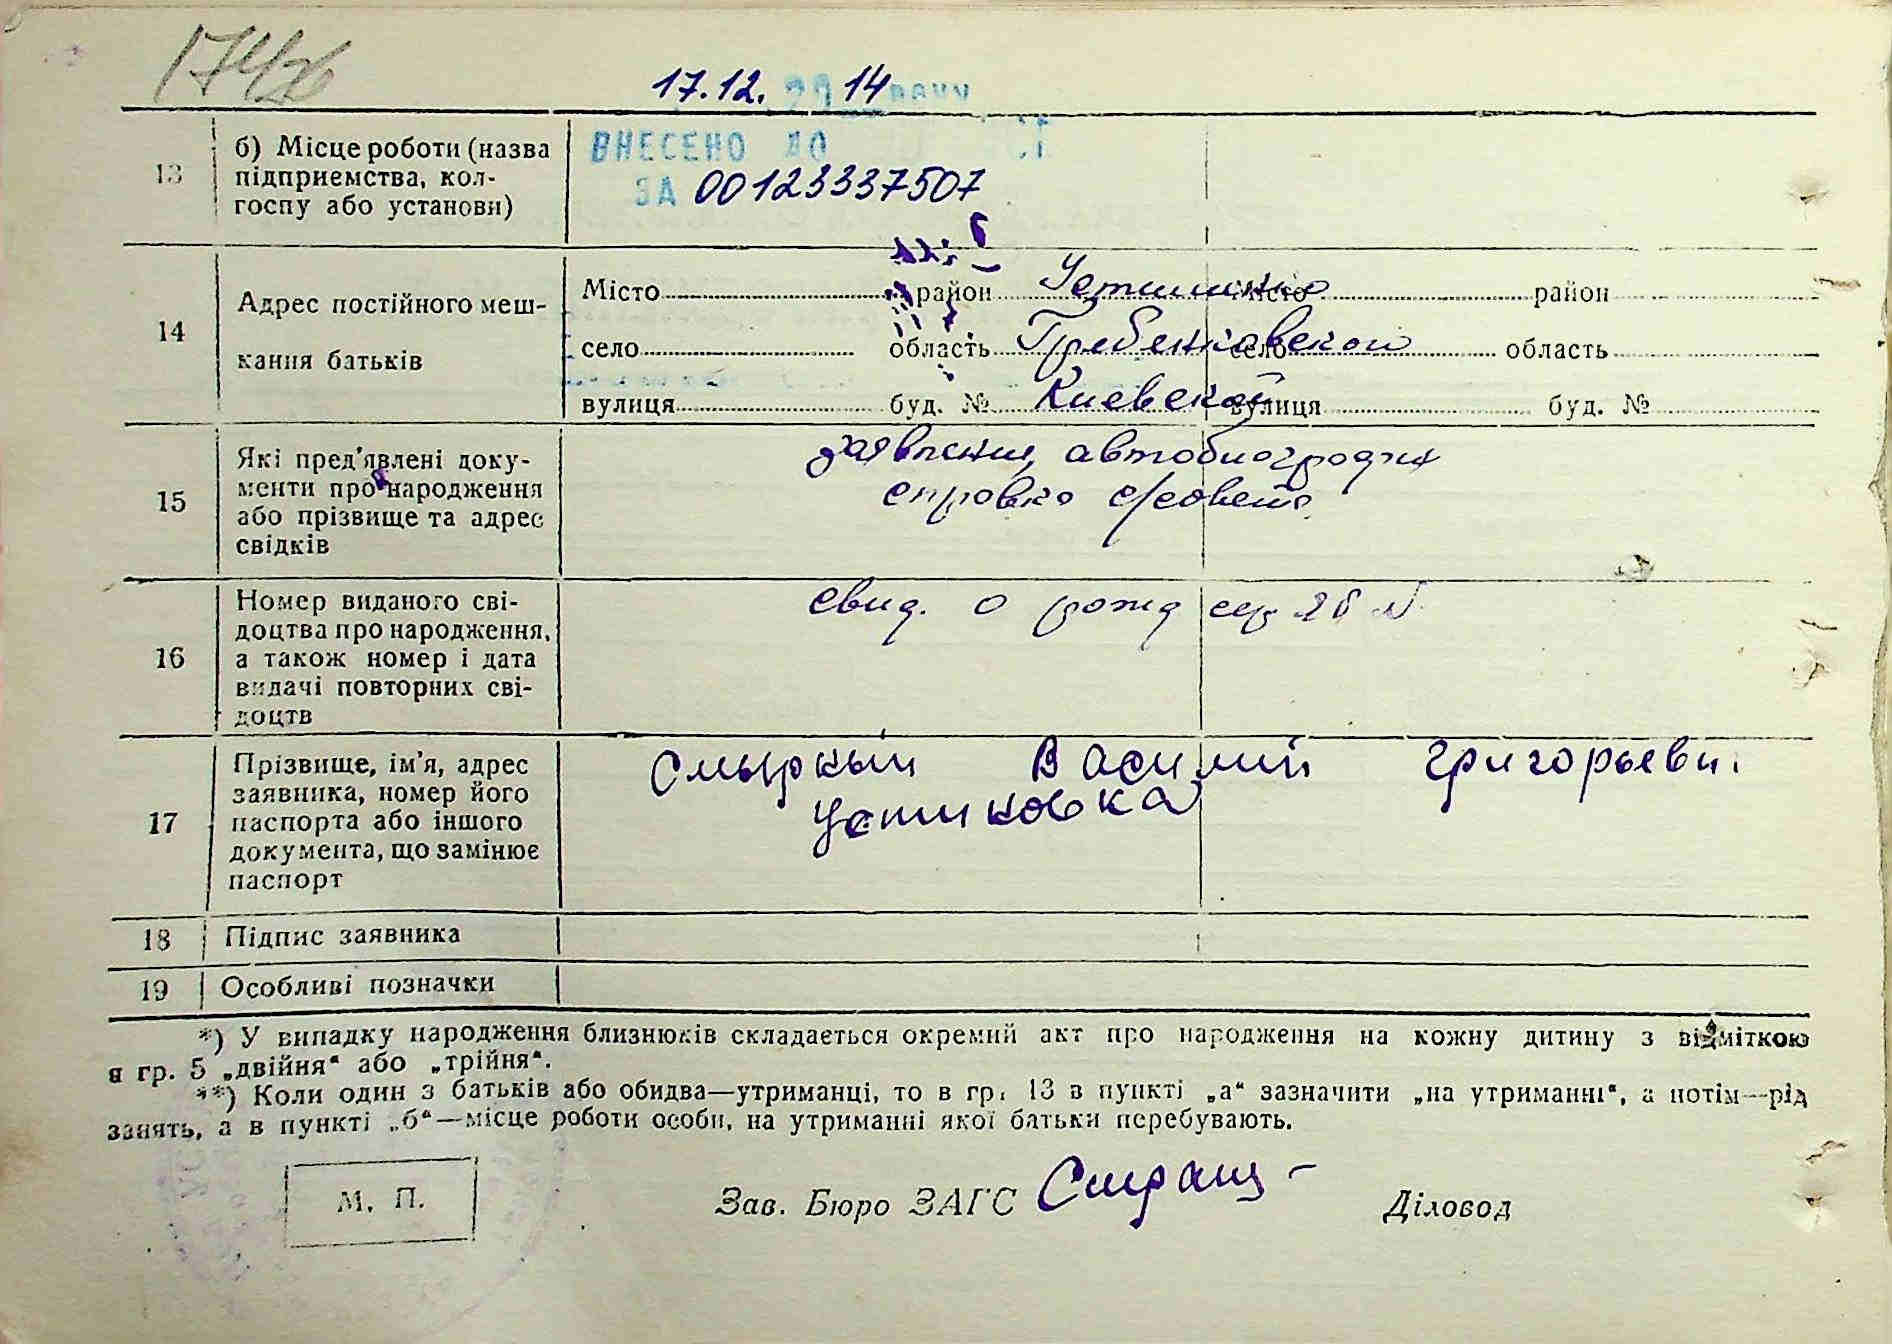 17.12. 2014 року
ВНЕСЕНО ДО
ЗА 00123337507
13
б) Місце роботи (назва
підприемства, кол-
госпу або установи)
14
Адрес постійного меш-
кання батьків
Місто район місто район
село область Гребенковской село область
вулиця буд. № Киевской вулиця буд. №
15
Які пред'явлені доку-
менти про народження
або прізвище та адрес
свідків
заявление, автобиография
справка с/совета
16
Номер виданого сві-
доцтва про народження,
а також номер і дата
видачі повторних сві-
доцтв
свид. о рожд сер
17
Прізвище, ім'я, адрес
заявника, номер його
паспорта або іншого
документа, що замінює
паспорт
Василий Григорьеви
18
Підпис заявника
19
Особливі позначки
*) У випадку народження близнюків складається окремий акт про народження на кожну дитину з відміткою
в гр. 5 „двійня“ або „трійня“.
**) Коли один з батьків або обидва—утриманці, то в гр. 13 в пункті „а“ зазначити „на утриманні“, а потім—рід
занять, а в пункті „б“—місце роботи особи, на утриманні якої батьки перебувають.
М. П.
Зав. Бюро ЗАГС
Діловод